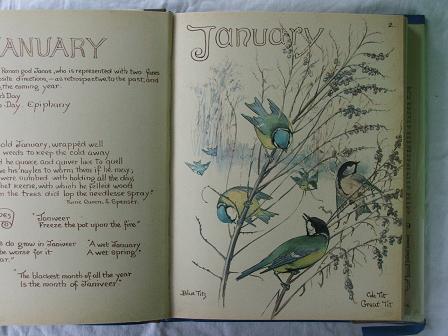 JANUARY
Roman god Janus, who is represented with two faces
posite directions, – as retrospective to the past, and
the coming year.
's Day
Day. Epiphany
old January, wrapped well
weeds to keep the cold away
did he quake and quiver like to quell
his nayles to warm them if he may;
were numbed with holding all the day
het keene, with which he felled wood
the trees did lop the needlesse spray."
Faerie Queen. E. Spenser.
"Janiveer
Freeze the pot upon the fire"
do grow in Janiveer
be worse for it
ear."
"A wet January
A wet spring".
"The blackest month of all the year
Is the month of Janiveer"
January
2.
Blue Tits
Cole Tit
Great Tit